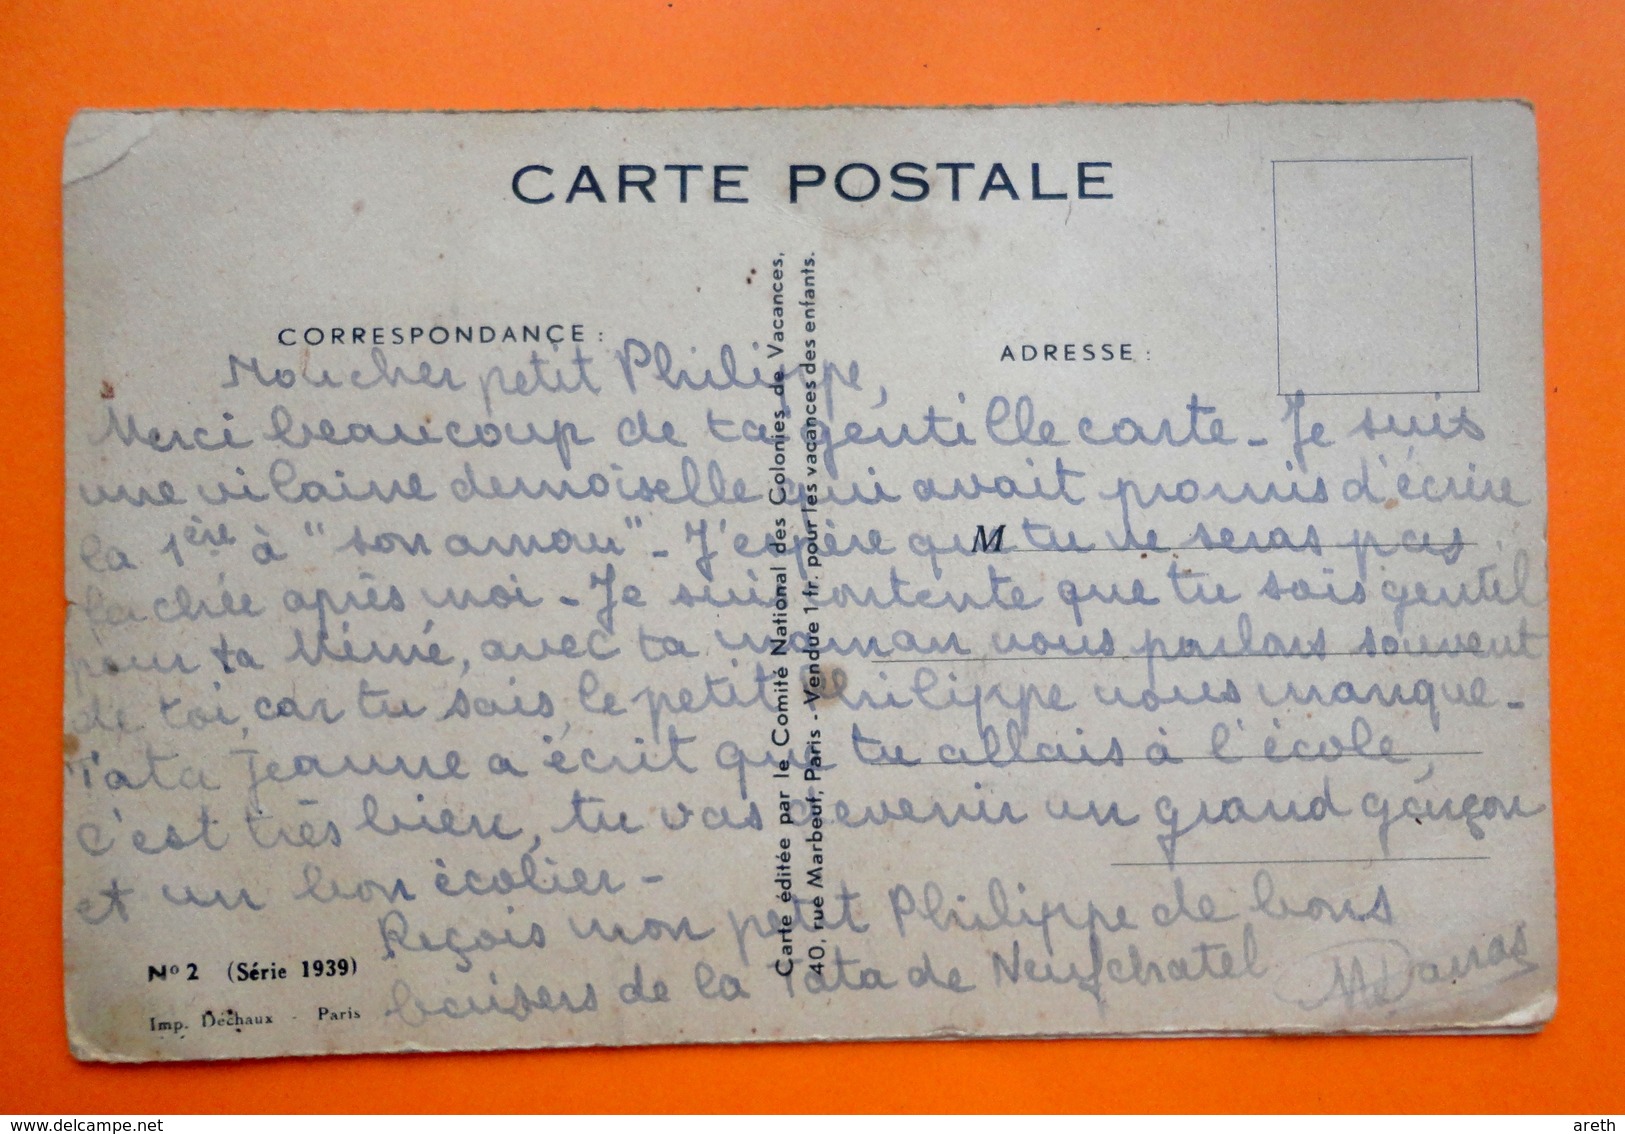 CARTE POSTALE
CORRESPONDANCE :
ADRESSE :
Mon cher petit Philippe,
Merci beaucoup de ta gentille carte - Je suis
une vilaine demoiselle qui avait promis d'écrire
la 1ère à "son amou" - J'espère que tu ne seras pas
fachée après moi - Je suis contente que tu sois gentil
pour ta Mémé, avec ta maman nous parlons souvent
de toi, car tu sais, le petit Philippe nous manque -
Tata Jeanne a écrit que tu allais à l'école,
c'est très bien, tu vas devenir un grand garçon
et un bon écolier -
Reçois mon petit Philippe de bons
baisers de la Tata de Neufchatel
M
Carte éditée par le Comité National des Colonies de Vacances,
40, rue Marbeuf, Paris - Vendue 1 fr. pour les vacances des enfants.
No 2 (Série 1939)
Imp. Déchaux - Paris
delcampe.net
areth